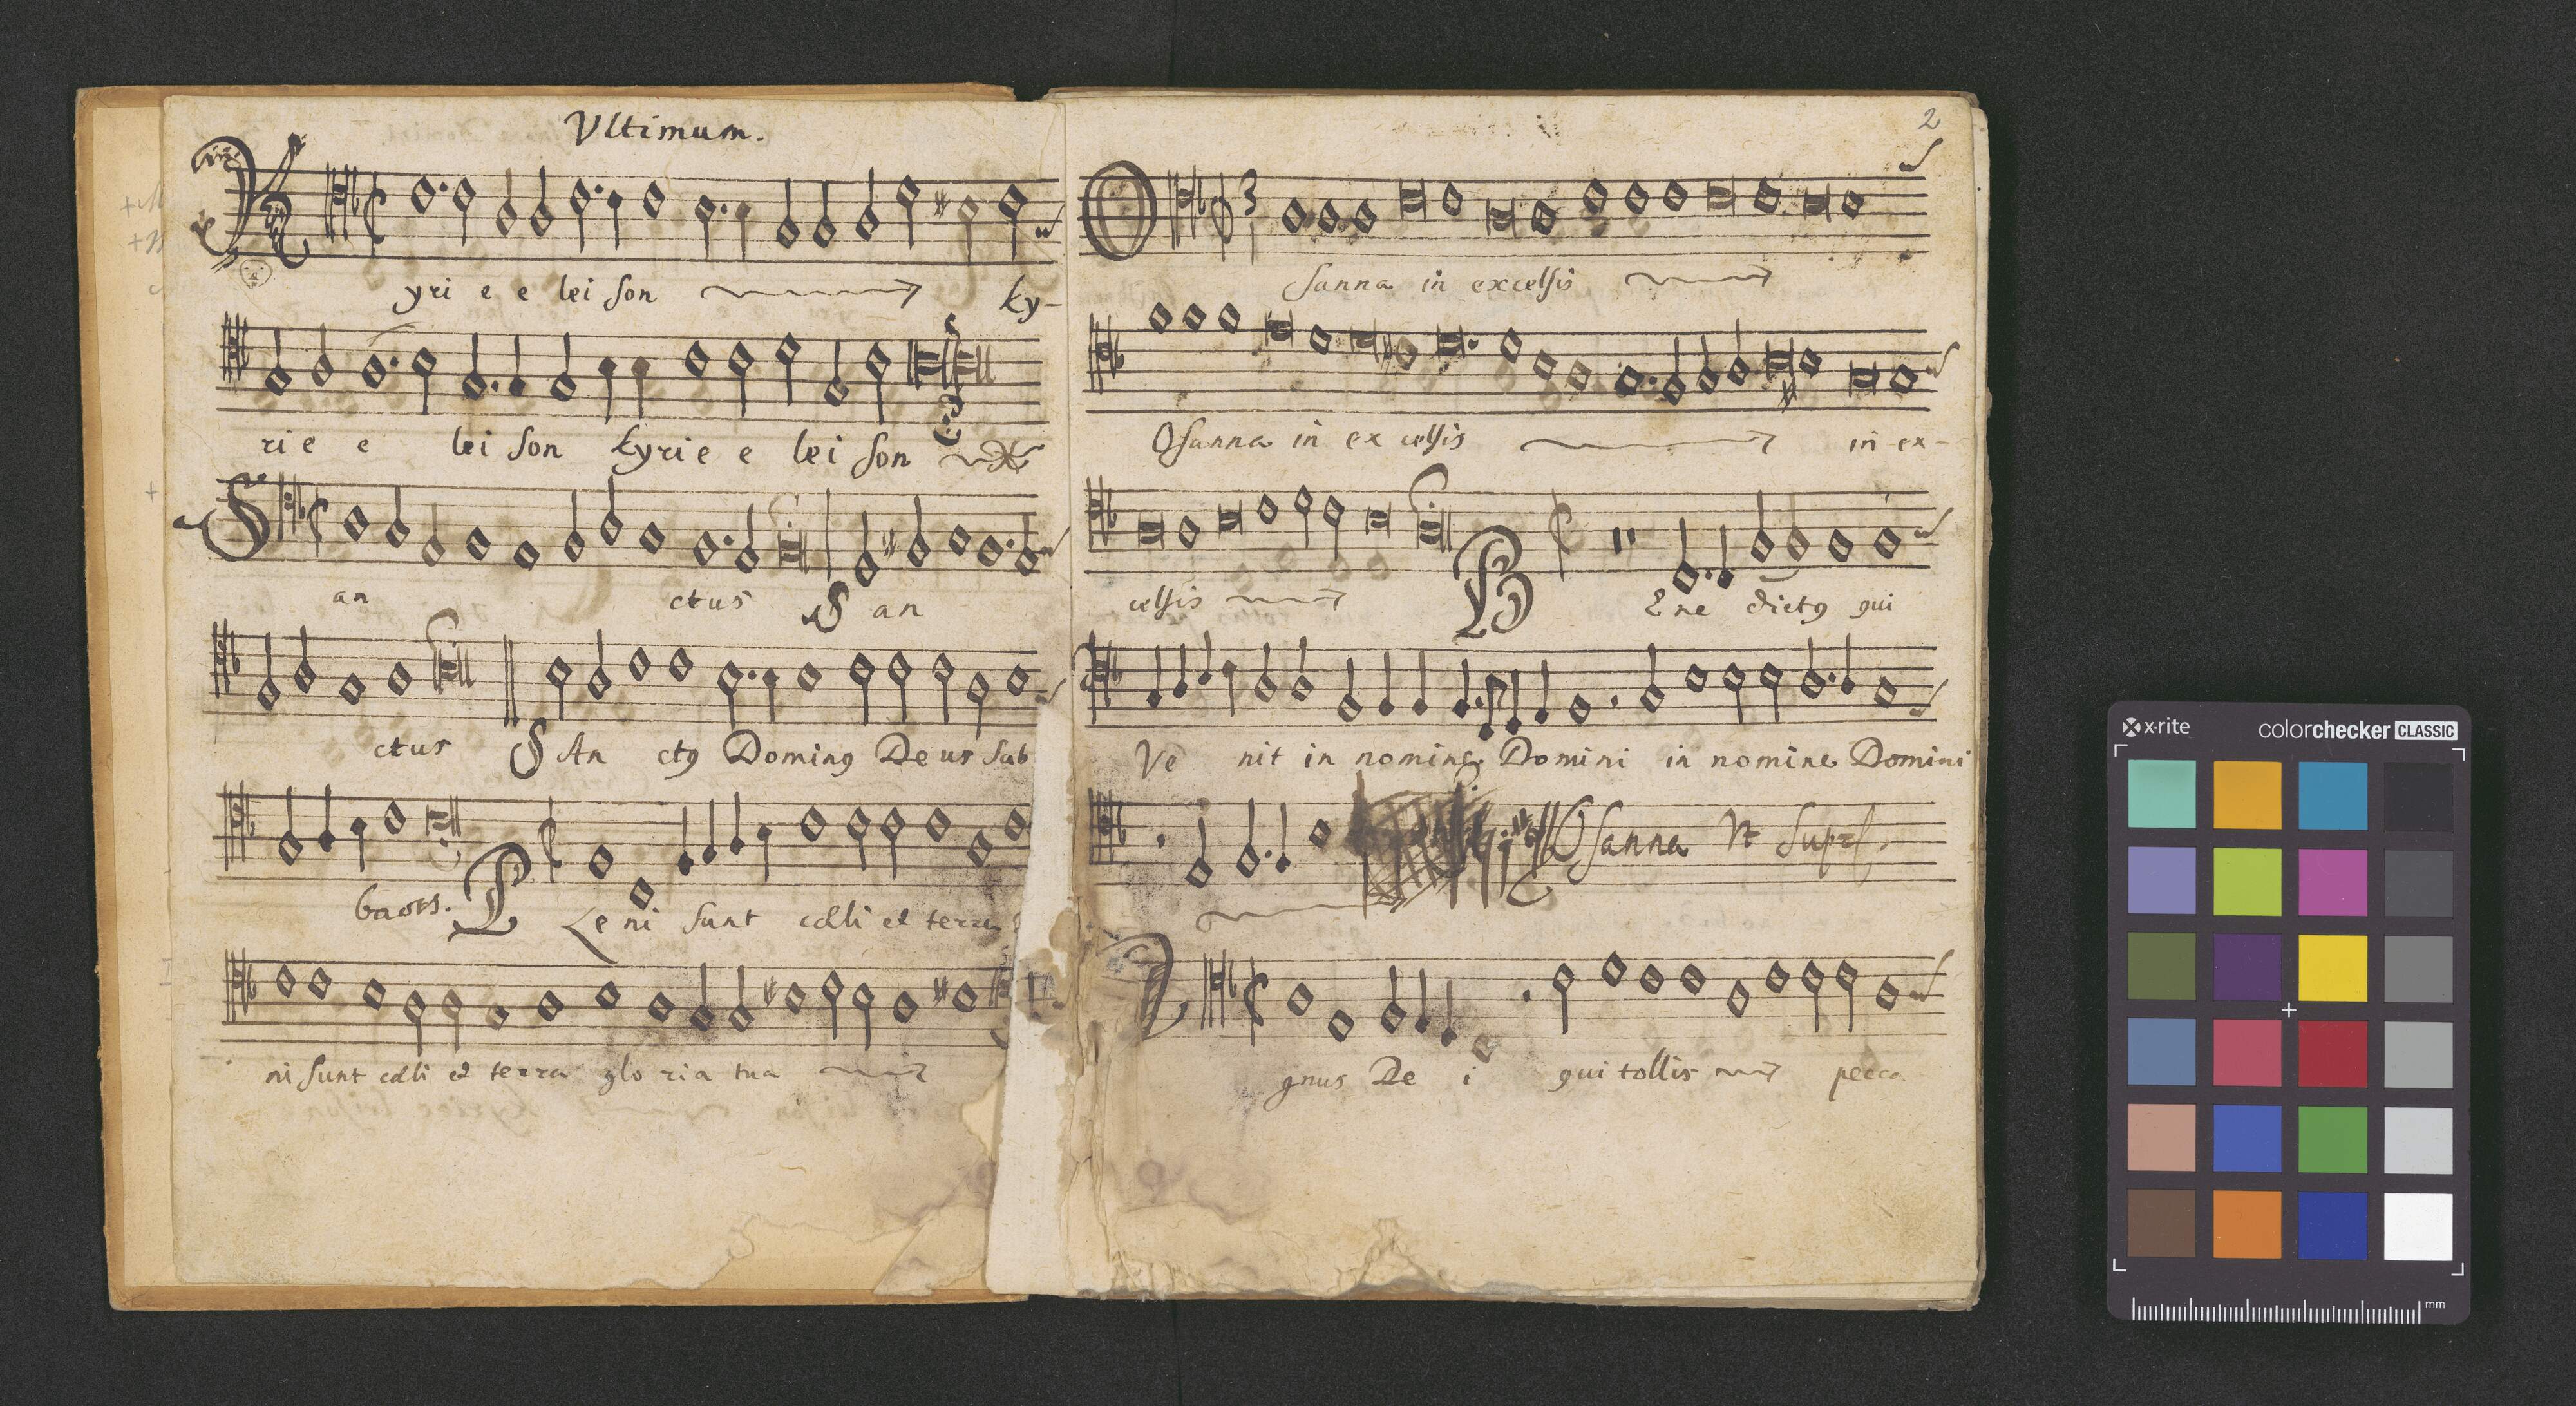 Ultimum.
Kyri e e lei son ky-
ri e e lei son kyri e e lei son
San ctus San
ctus SAn ctꝯ Dominꝯ De us Sab
baots. PLe ni sunt cœli et terra
ni sunt cœli et terra glo ria tua
2
3
Osanna in excelsis
Osanna in ex celsis in ex-
celsis BEne dictꝯ qui
Ve nit in nomine Domini in nomine Domini
Osanna Vt Supr
gnus De i qui tollis pecca
x-rite colorchecker CLASSIC
mm